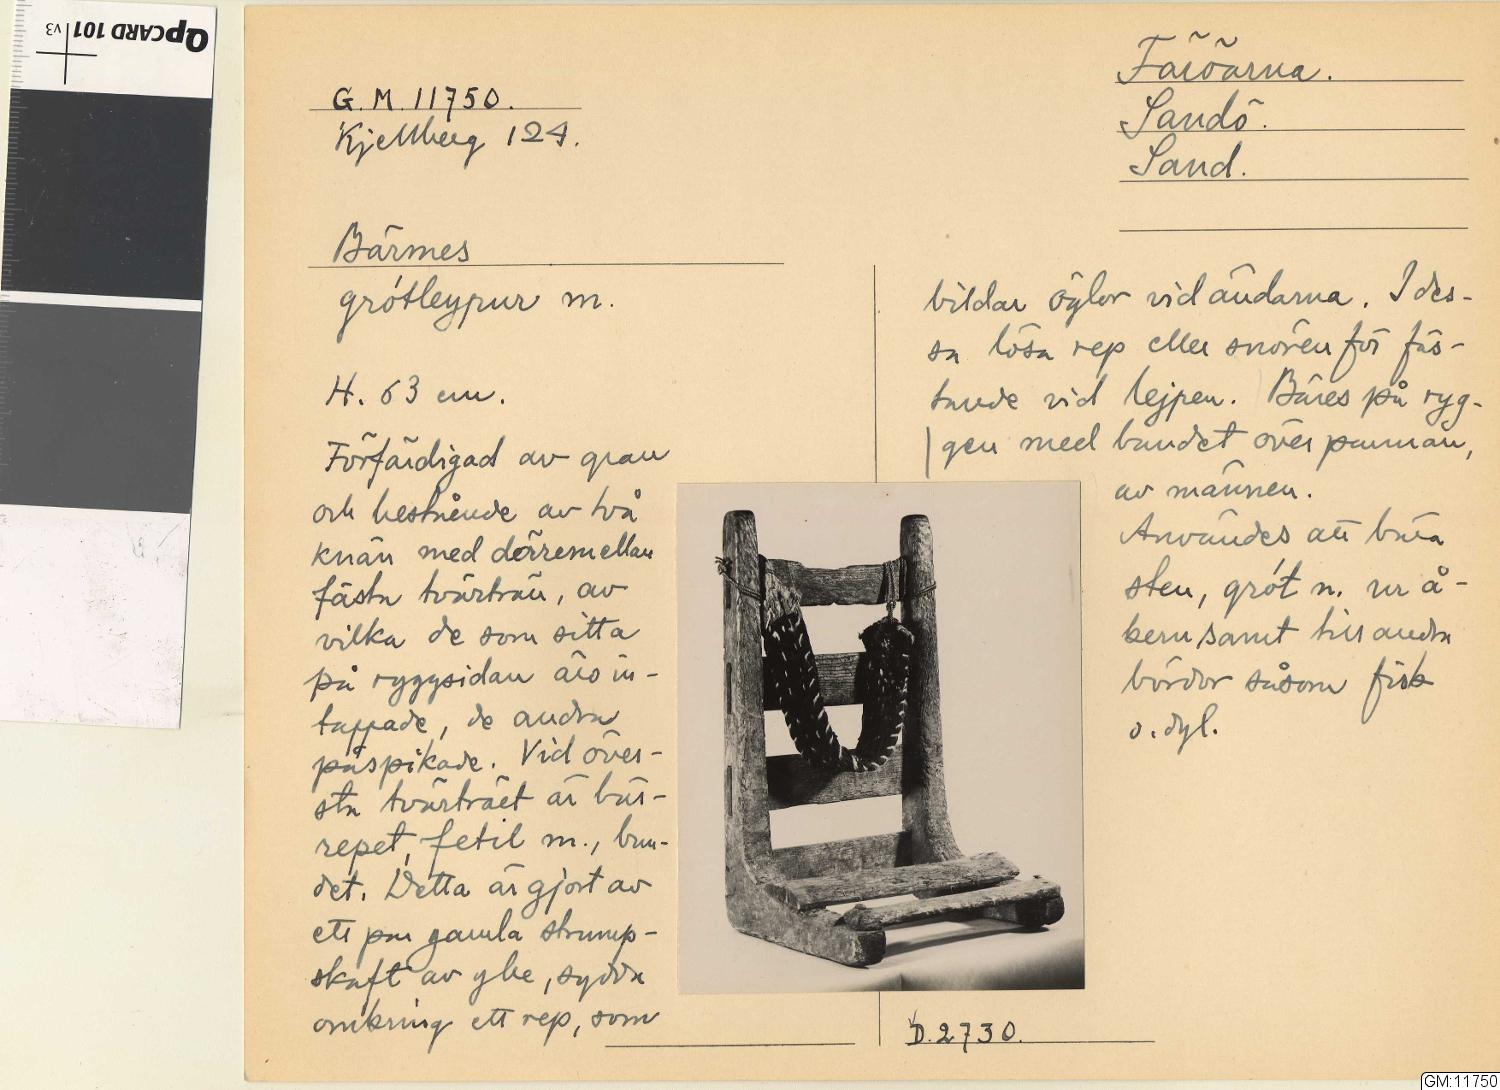 QPCARD 101 v3
G.M. 11750.
Kjellberg 124.
Färöarna.
Sandö.
Sand.
Bärmes
grótleypur m.
H. 63 cm.
Förfärdigad av gran
och bestående av två
knän med därremellan
fästa tvärträn, av
vilka de som sitta
på ryggsidan äro in-
tappade, de andra
påspikade. Vid övers-
sta tvärträet är bär-
repet, fetil m., bun-
det. Detta är gjort av
ett par gamla strump-
skaft av ylle, sydda
omkring ett rep, som
bildar öglor vid ändarna. I des-
sa lösa rep eller snören för fäs-
tande vid lejpen. Bäres på ryg-
gen med bandet över pannan,
av männen.
Användes att bära
sten, grót n. ur å-
kern samt till andra
bördor såsom fisk
o. dyl.
D.2730.
GM:11750